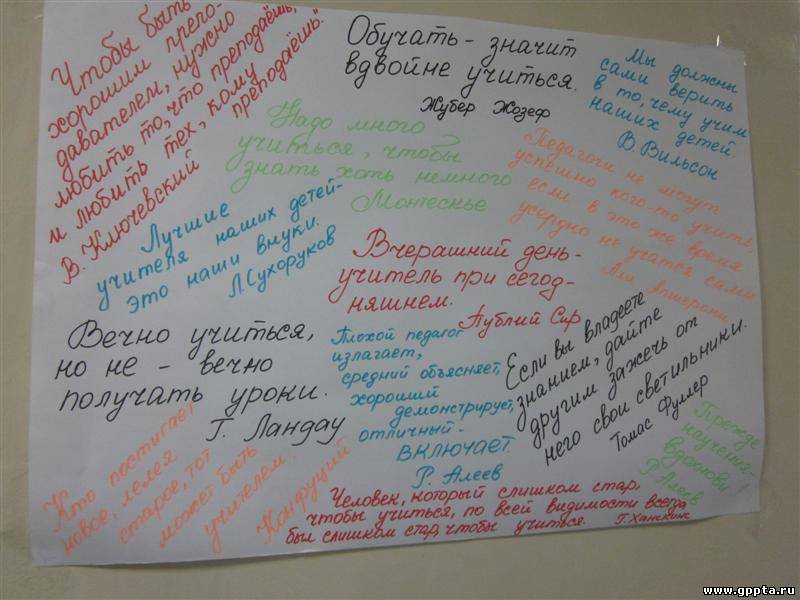 Чтобы быть
хорошим препо-
давателем, нужно
любить то, что преподаёшь,
и любить тех, кому
преподаёшь."
В. Ключевский
Обучать - значит
вдвойне учиться.
Жубер Жозеф
Мы должны
сами верить
в то, чему учим
наших детей.
В. Вильсон
Надо много
учиться, чтобы
знать хоть немного
Монтескье
Педагоги не могут
успешно кого-то учить,
если в это же время
усердно не учатся сами
Али Апшерони
Лучшие
учителя наших детей-
это наши внуки.
Л Сухоруков
Вчерашний день-
учитель при сегод-
няшнем.
Публий Сир
Вечно учиться,
но не - вечно
получать уроки.
Г. Ландау
Плохой педагог
излагает,
средний объясняет,
хороший
демонстрирует,
отличный -
включает.
Р. Алеев
Если вы владеете
знанием, дайте
другим зажечь от
него свои светильники.
Томас Фуллер
Прежде
научения -
вдохнови!
Р Алеев
Кто постигает
новое, лелея
старое, тот
может быть
учителем.
Конфуций
Человек, который слишком стар,
чтобы учиться, по всей видимости всегда
был слишком стар, чтобы учиться.
Г. Хаскинс
www.gppta.ru